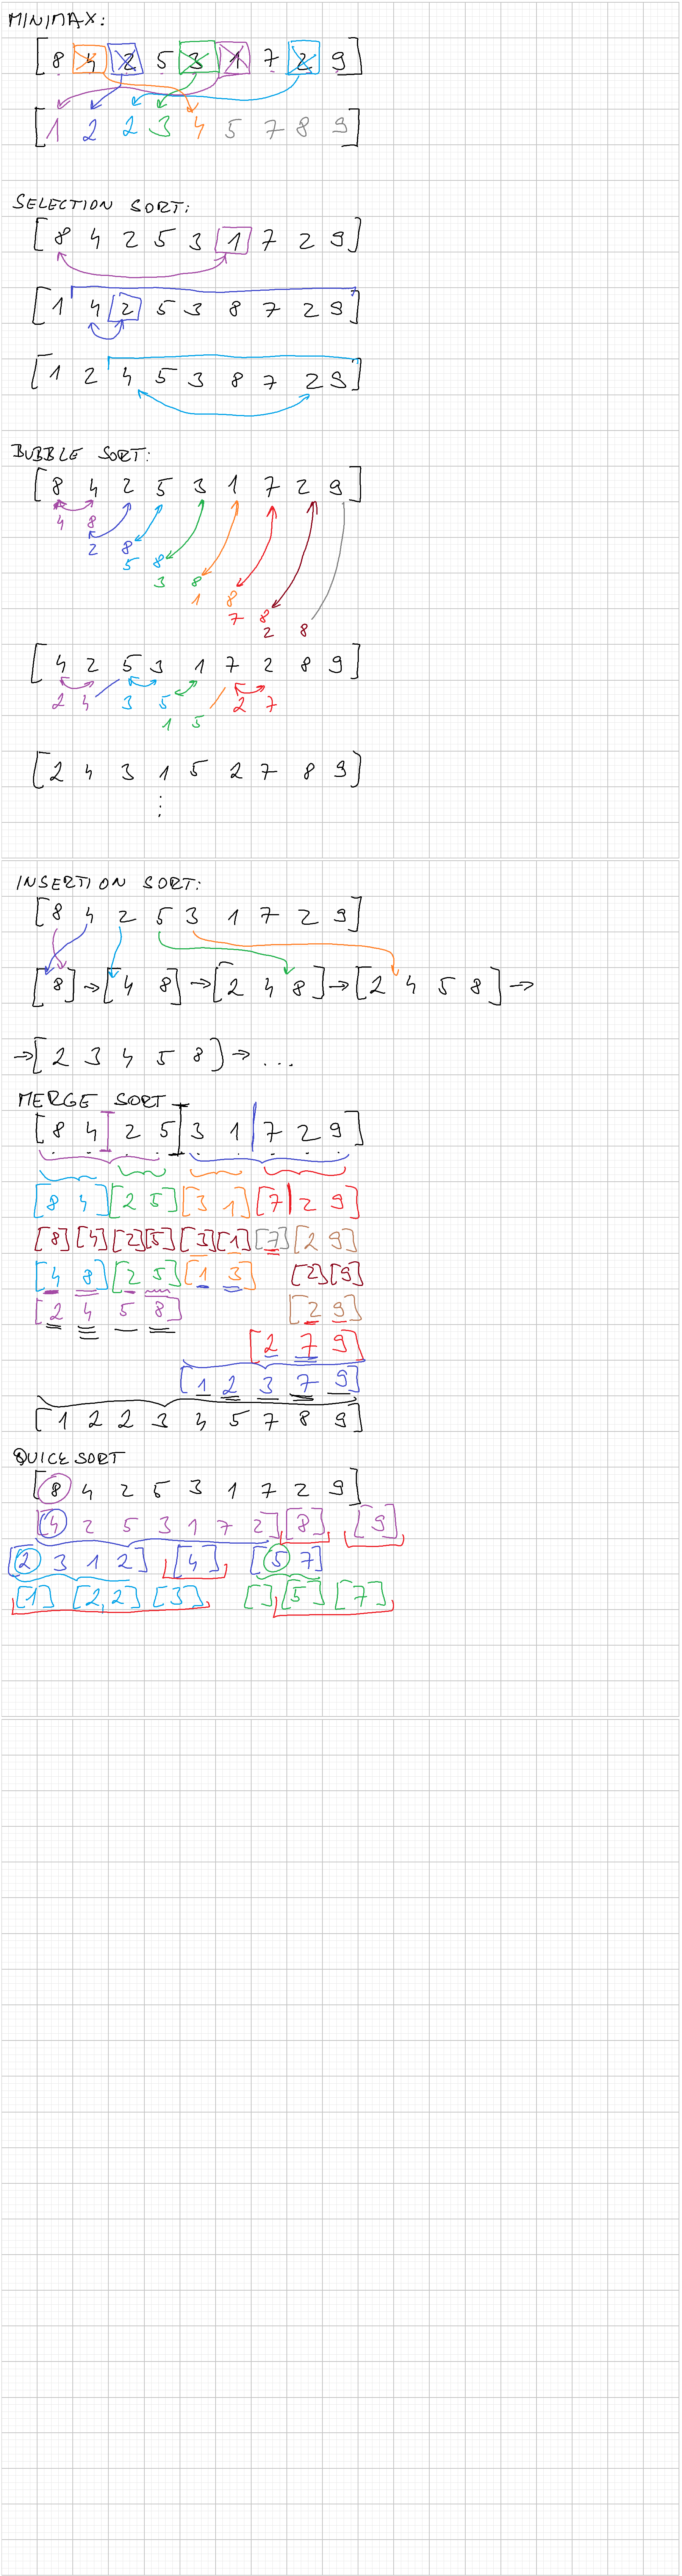 MINIMAX:
[8 4 2 5 3 1 7 2 9]
[1 2 2 3 4 5 7 8 9]
SELECTION SORT:
[8 4 2 5 3 1 7 2 9]
[1 4 2 5 3 8 7 2 9]
[1 2 4 5 3 8 7 2 9]
BUBBLE SORT:
[8 4 2 5 3 1 7 2 9]
4 8
2 8
5 8
3 8
1 8
7 8
2 8
[4 2 5 3 1 7 2 8 9]
2 4 3 5 2 7
1 5
[2 4 3 1 5 2 7 8 9]
⋮
INSERTION SORT:
[8 4 2 5 3 1 7 2 9]
[8] → [4 8] → [2 4 8] → [2 4 5 8] →
→ [2 3 4 5 8) → ...
MERGE SORT
[8 4 | 2 5 | 3 1 | 7 2 9]
[8 4] [2 5] [3 1] [7 | 2 9]
[8] [4] [2] [5] [3] [1] [7] [2 9]
[4 8] [2 5] [1 3] [2] [9]
[2 4 5 8] [2 9]
[2 7 9]
[1 2 3 7 9]
[1 2 2 3 4 5 7 8 9]
QUICKSORT
[8 4 2 5 3 1 7 2 9]
[4 2 5 3 1 7 2] [8] [9]
[2 3 1 2] [4] [5 7]
[1] [2,2] [3] [] [5] [7]